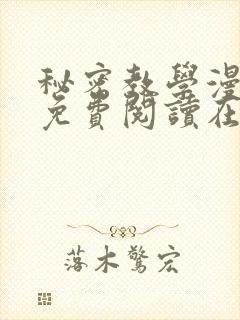 秘密教學漫
免費閱讀在
落木驚宏